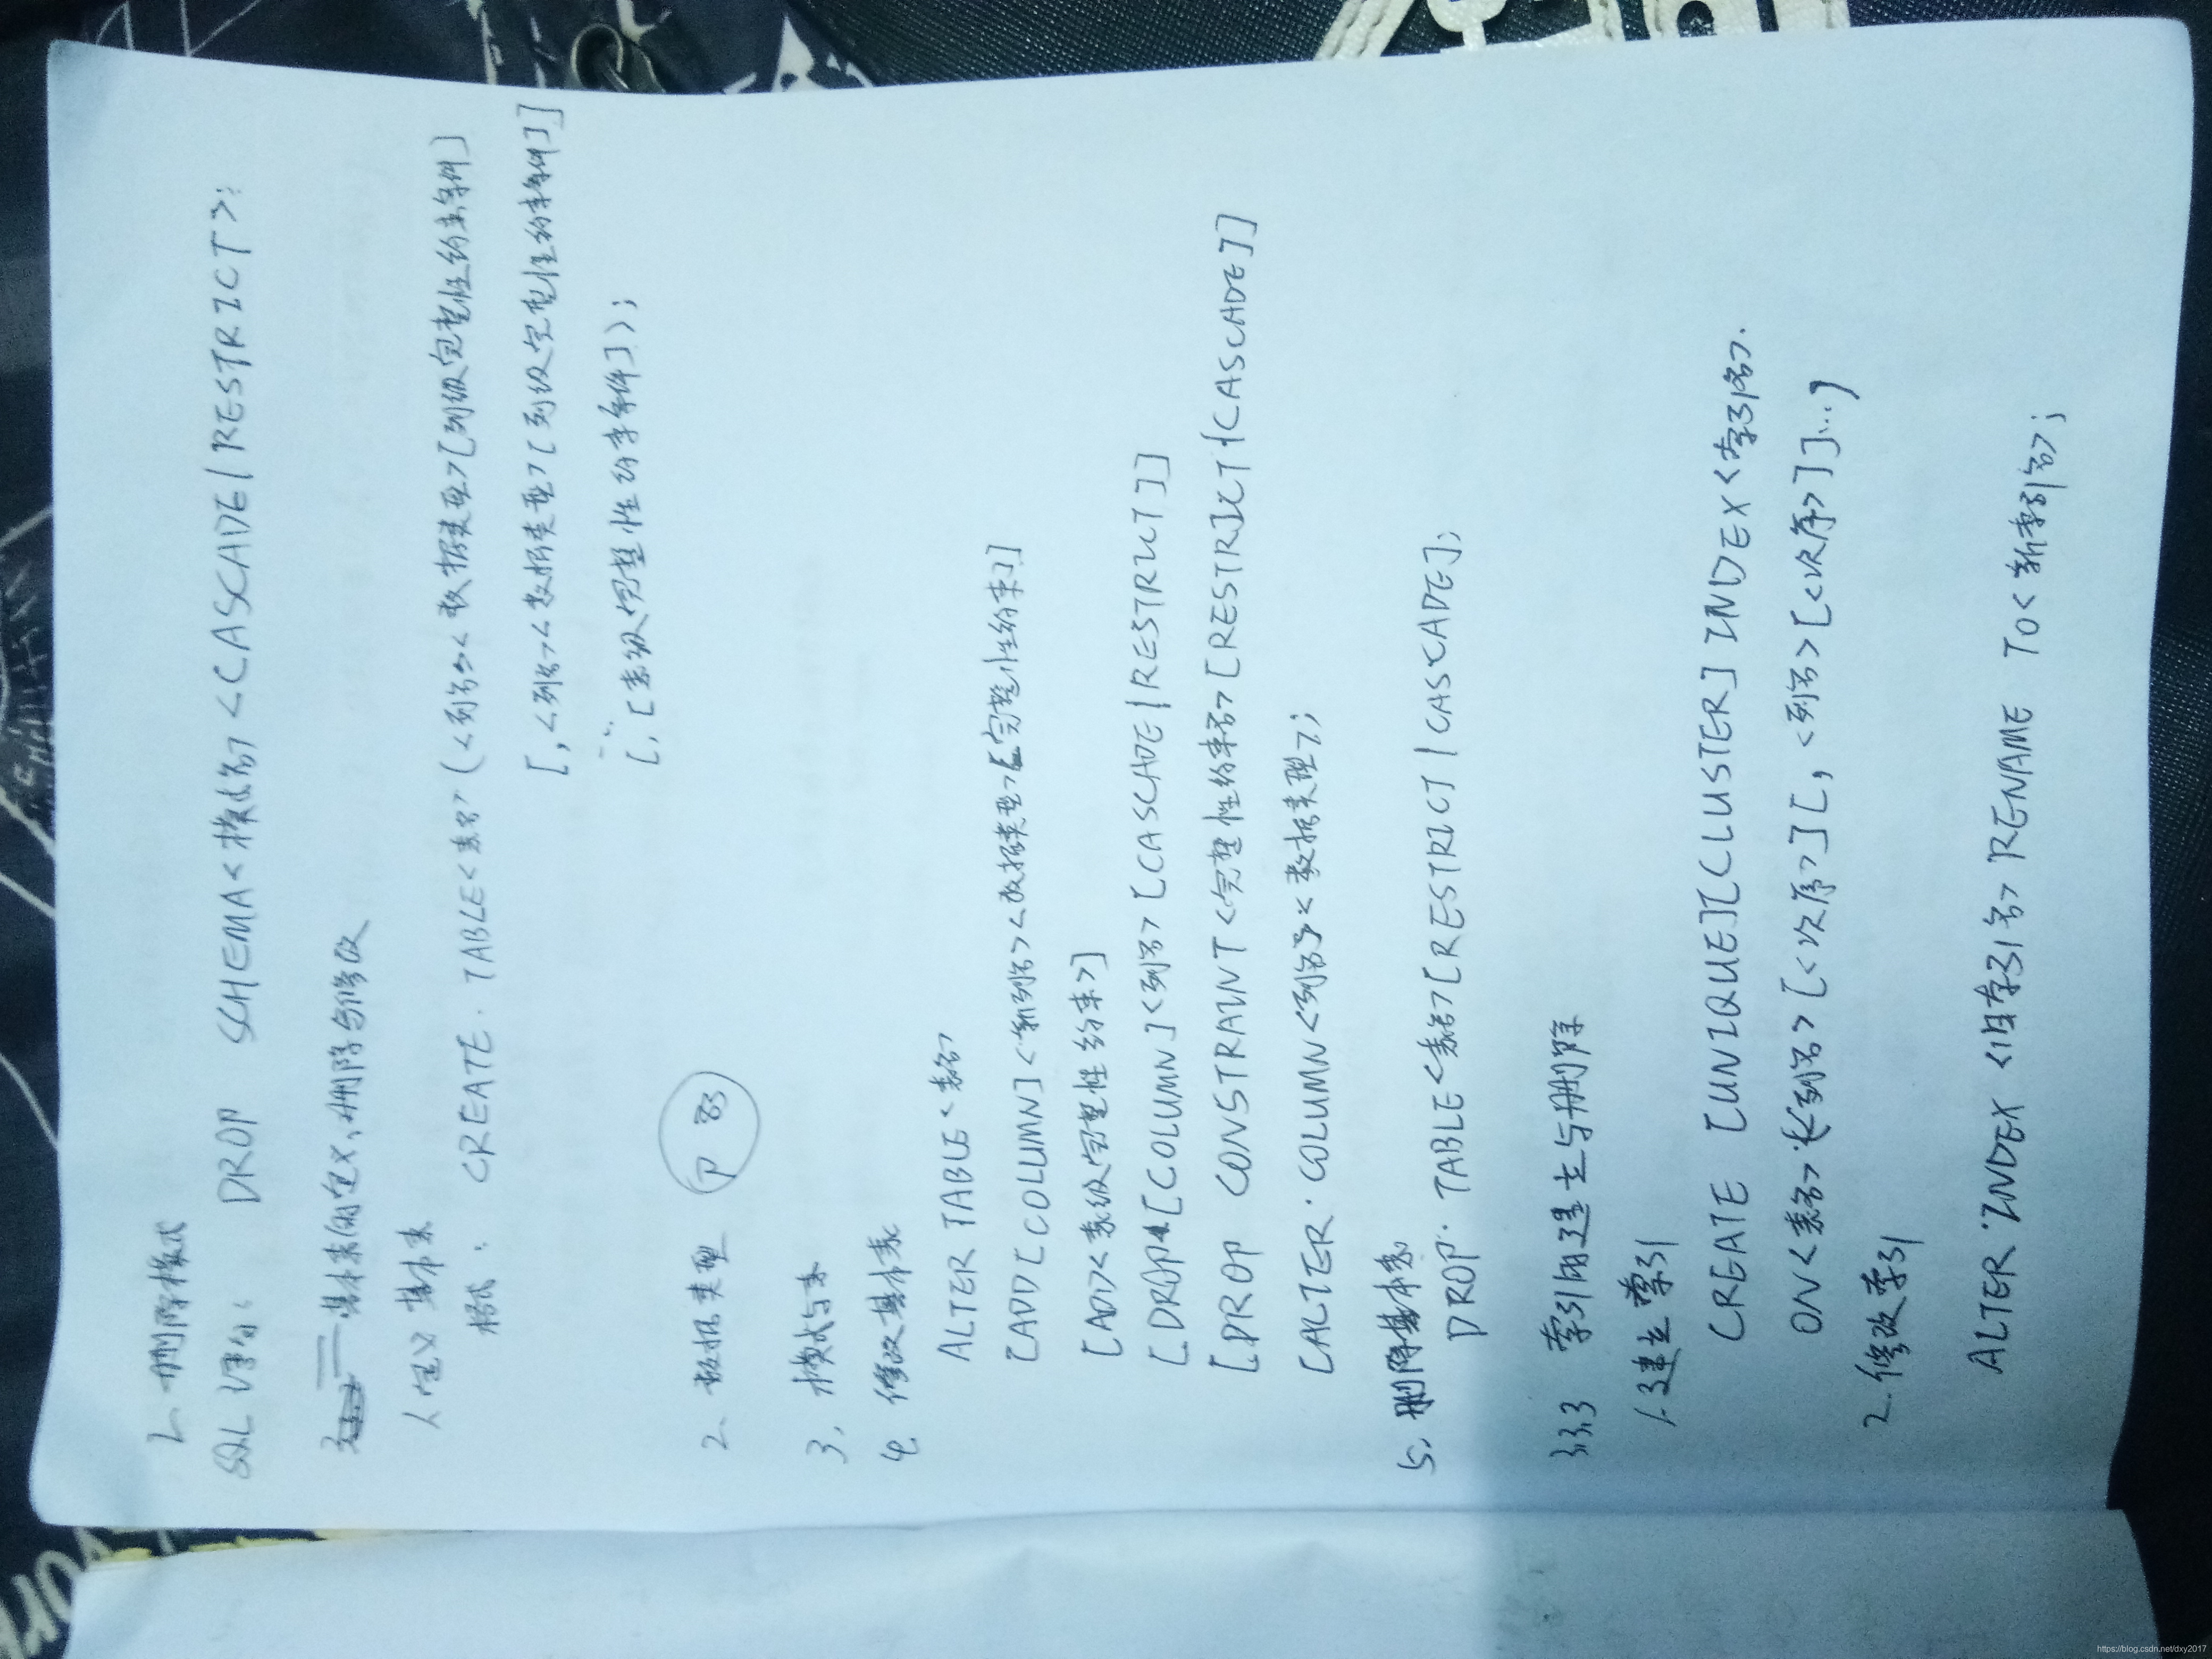 2. 删除模式
SQL语句: DROP SCHEMA<模式名><CASCADE/RESTRICT>;
基本表的定义、删除与修改
1. 定义基本表
格式: CREATE TABLE<表名>(<列名><数据类型>[列级完整性约束条件]
[,<列名><数据类型>[列级完整性约束条件]]
...
[,[表级完整性约束条件]);
2. 数据类型 P83
3. 模式与表
4. 修改基本表
ALTER TABLE<表名>
[ADD[COLUMN]<新列名><数据类型>[完整性约束]]
[ADD<表级完整性约束>]
[DROP[COLUMN]<列名>[CASCADE|RESTRICT]]
[DROP CONSTRAINT<完整性约束名>[RESTRICT|CASCADE]]
[ALTER COLUMN<列名><数据类型>];
5. 删除基本表
DROP TABLE<表名>[RESTRICT|CASCADE];
3.3.3 索引的建立与删除
1. 建立索引
CREATE [UNIQUE][CLUSTER] INDEX<索引名>
ON<表名>(<列名>[<次序>][,<列名>[<次序>]]...)
2. 修改索引
ALTER INDEX <旧索引名> RENAME TO<新索引名>;
https://blog.csdn.net/dxy2017